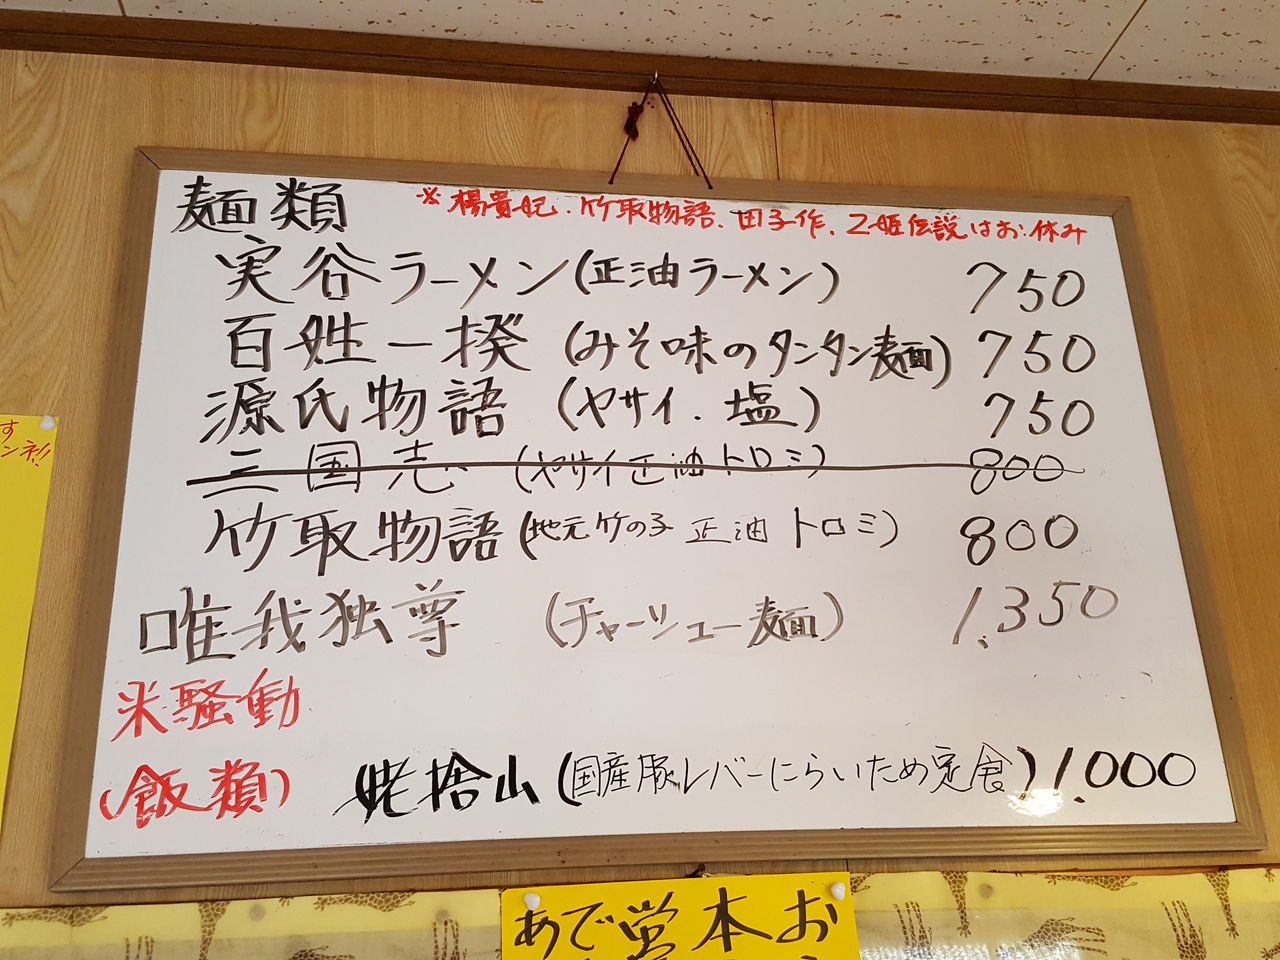 麺類
※楊貴妃.竹取物語.田子作.乙姫伝説はお休み
実谷ラーメン(正油ラーメン) 750
百姓一揆(みそ味のタンタン麺) 750
源氏物語(ヤサイ.塩) 750
三国志(ヤサイ正油トロミ) 800
竹取物語(地元竹の子 正油 トロミ) 800
唯我独尊(チャーシュー麺) 1,350
米騒動
(飯類) 姥捨山(国産豚レバーにらいため定食) 1,000
す
ンネ!!
あで営本お